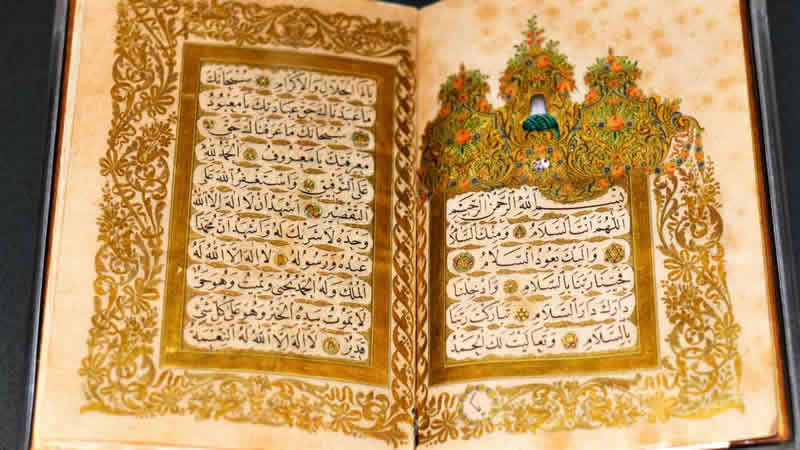 بسم الله الرحمن الرحيم
اللهم انت السلام ومنك السلام
واليك يعود السلام
فحينا ربنا بالسلام وادخلنا
دارك دار السلام تباركت ربنا
بالسلام وتعاليت لك الحمد
ياذا الجلال والاكرام سبحانك
ما عبدناك حق عبادتك يا معبود
سبحانك ما عرفناك حق
معرفتك يا معروف الحمد لله
على التوفيق واستغفر الله على
التقصير اشهد ان لا اله الا الله
وحده لا شريك له واشهد ان محمدا
عبده ورسوله لا اله الا الله له
الملك وله الحمد يحيي ويميت وهو حي
لا يموت بيده الخير وهو على كل شئ
قدير لا اله الا الله له النعمة